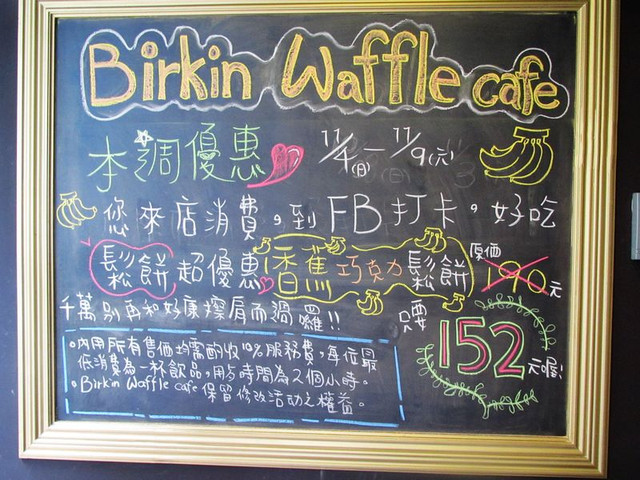 Birkin Waffle cafe
本週優惠 11/4(日)—11/9(六)
您來店消費，到FB打卡，好吃
鬆餅超優惠 香蕉巧克力鬆餅 原價 190元
千萬別再和好康擦肩而過囉!! 只要 152元喔!
。內用所有售價均需酌收10%服務費，每位最
低消費為一杯飲品，用餐時間為2個小時。
。Birkin Waffle cafe 保留修改活動之權益。